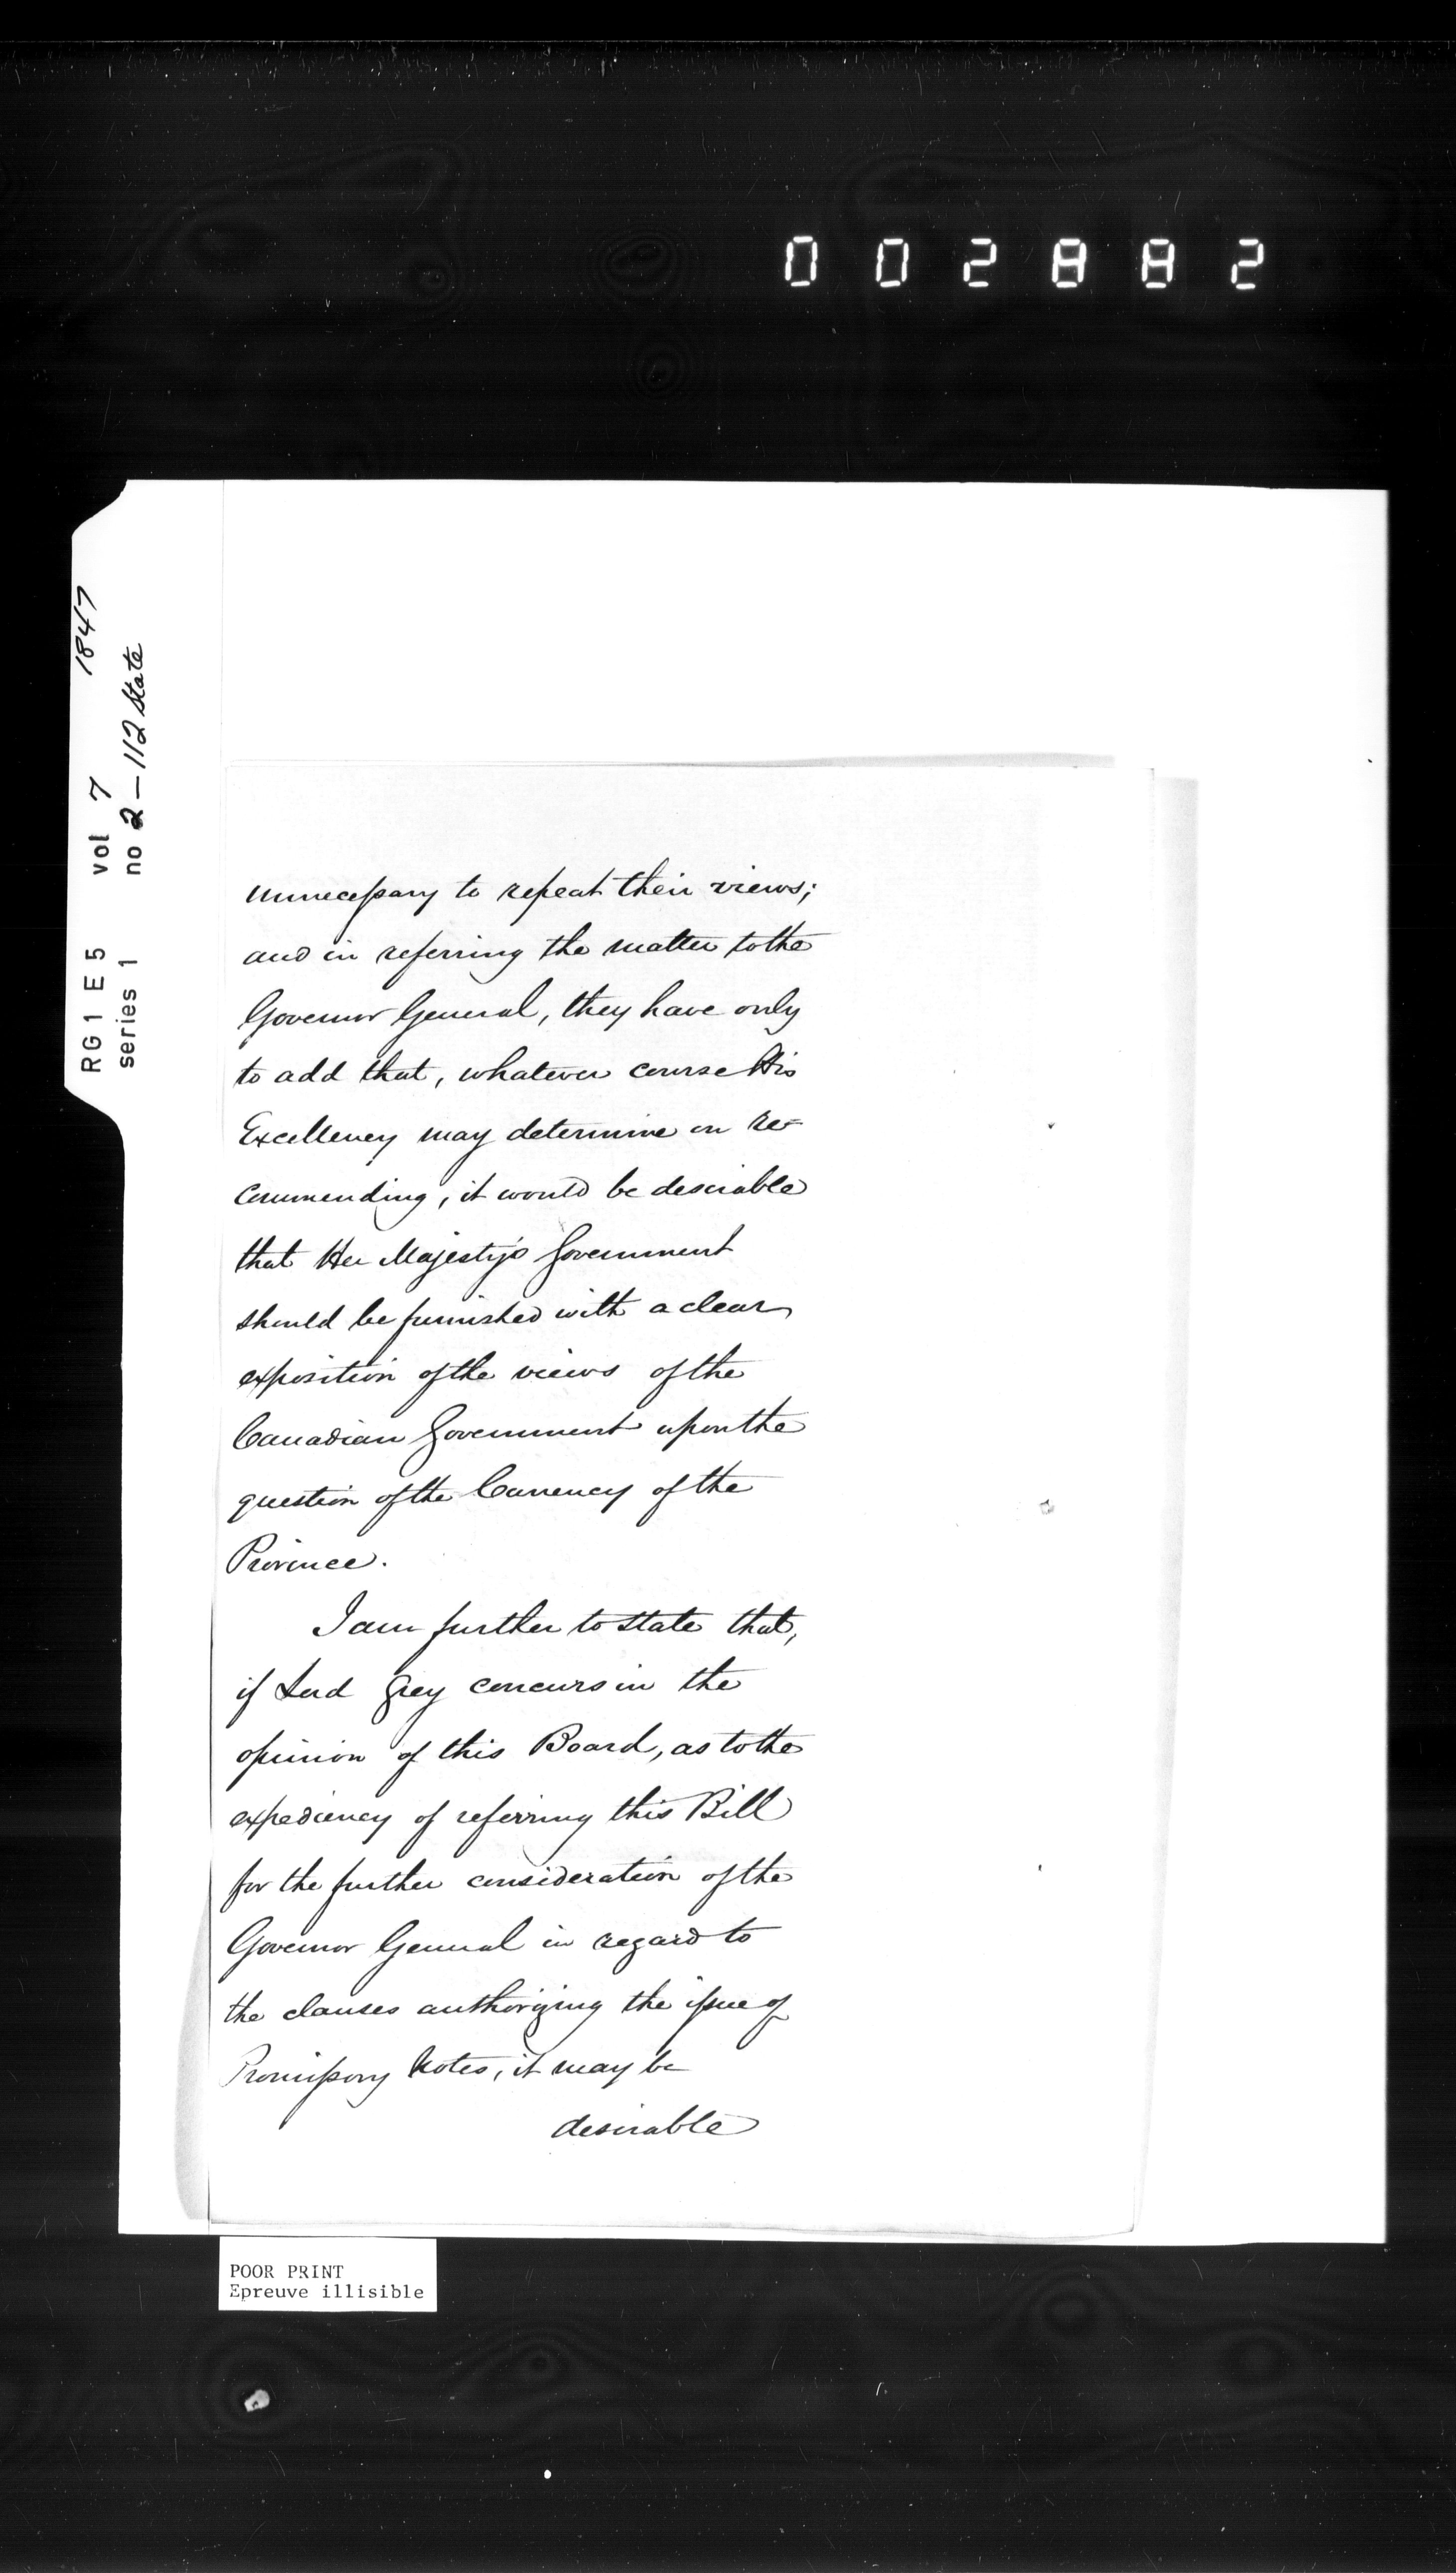 002882
RG1 E5 vol 7 1847
series 1 no 2-112 State
unnecessary to repeat their views;
and in referring the matter to the
Governor General, they have only
to add that, whatever course His
Excellency may determine on re-
commending, it would be desirable
that Her Majesty's Government
should be furnished with a clear
exposition of the views of the
Canadian Government upon the
question of the Currency of the
Province.
I am further to state that,
if Lord Grey concurs in the
opinion of this Board, as to the
expediency of referring this Bill
for the further consideration of the
Governor General in regard to
the clauses authorizing the issue of
Promissory Notes, it may be
desirable
POOR PRINT
Epreuve illisible